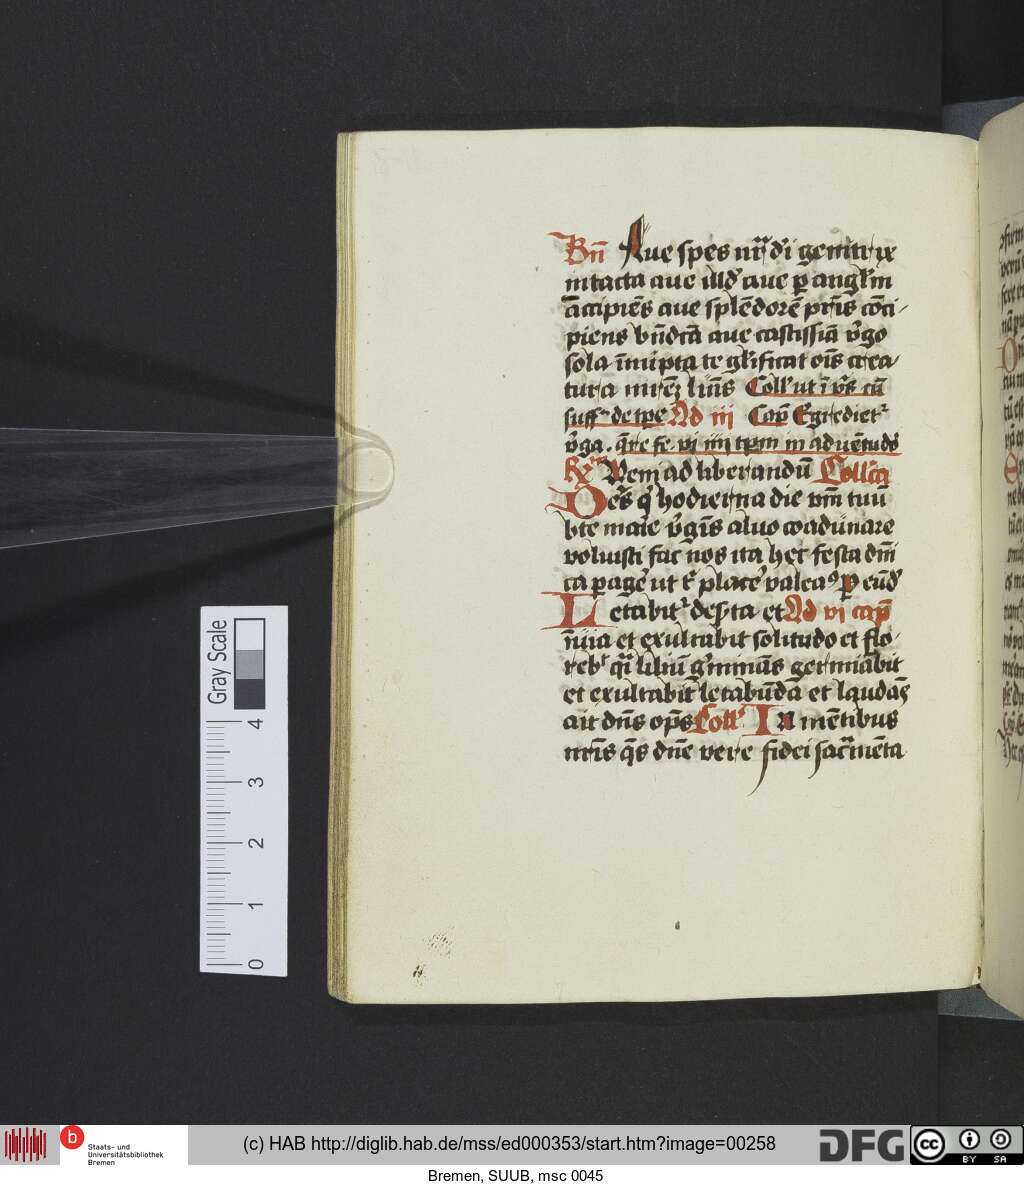 Bn̄ Aue spes nr̄a dei genitrix
intacta aue illd̕ aue per angl̕m
accipiēs aue splēdorē prīs cōci-
piens bn̄dctā aue castissīa v̕go
sola īnupta te gl̕ificat om̄s crea
tura mrēꝫ lūīs Coll̕ ut ī v̕s cū
suff̕ de tpe Ad iii Cap̄ Egredietʳ
v̕ga
Rx Veni ad liberandū Collcā
Deꝰs q̕ hodierna die vm̄ tuū
bte marie v̕gīs aluo coadunare
voluisti fac nos ita hec festa dm̄i
ut t̕ place̕ valeaꝰ p̱ eūd̕
Letabitʳ des̕ta et Ad vi cap̄
īuia et exultabit solitudo et flo-
rebt̕ qⁱ liliū g̕minās germīabit
et exultabit letabūdā et laudās
ait dn̄s op̄s Coll̕ In mētibus
nr̄is q̄s dn̄e vere fidei sacr̄mēta
Gray Scale
4
3
2
1
0
b Staats- und
Universitätsbibliothek
Bremen
(c) HAB http://diglib.hab.de/mss/ed000353/start.htm?image=00258
DFG
cc BY SA
Bremen, SUUB, msc 0045